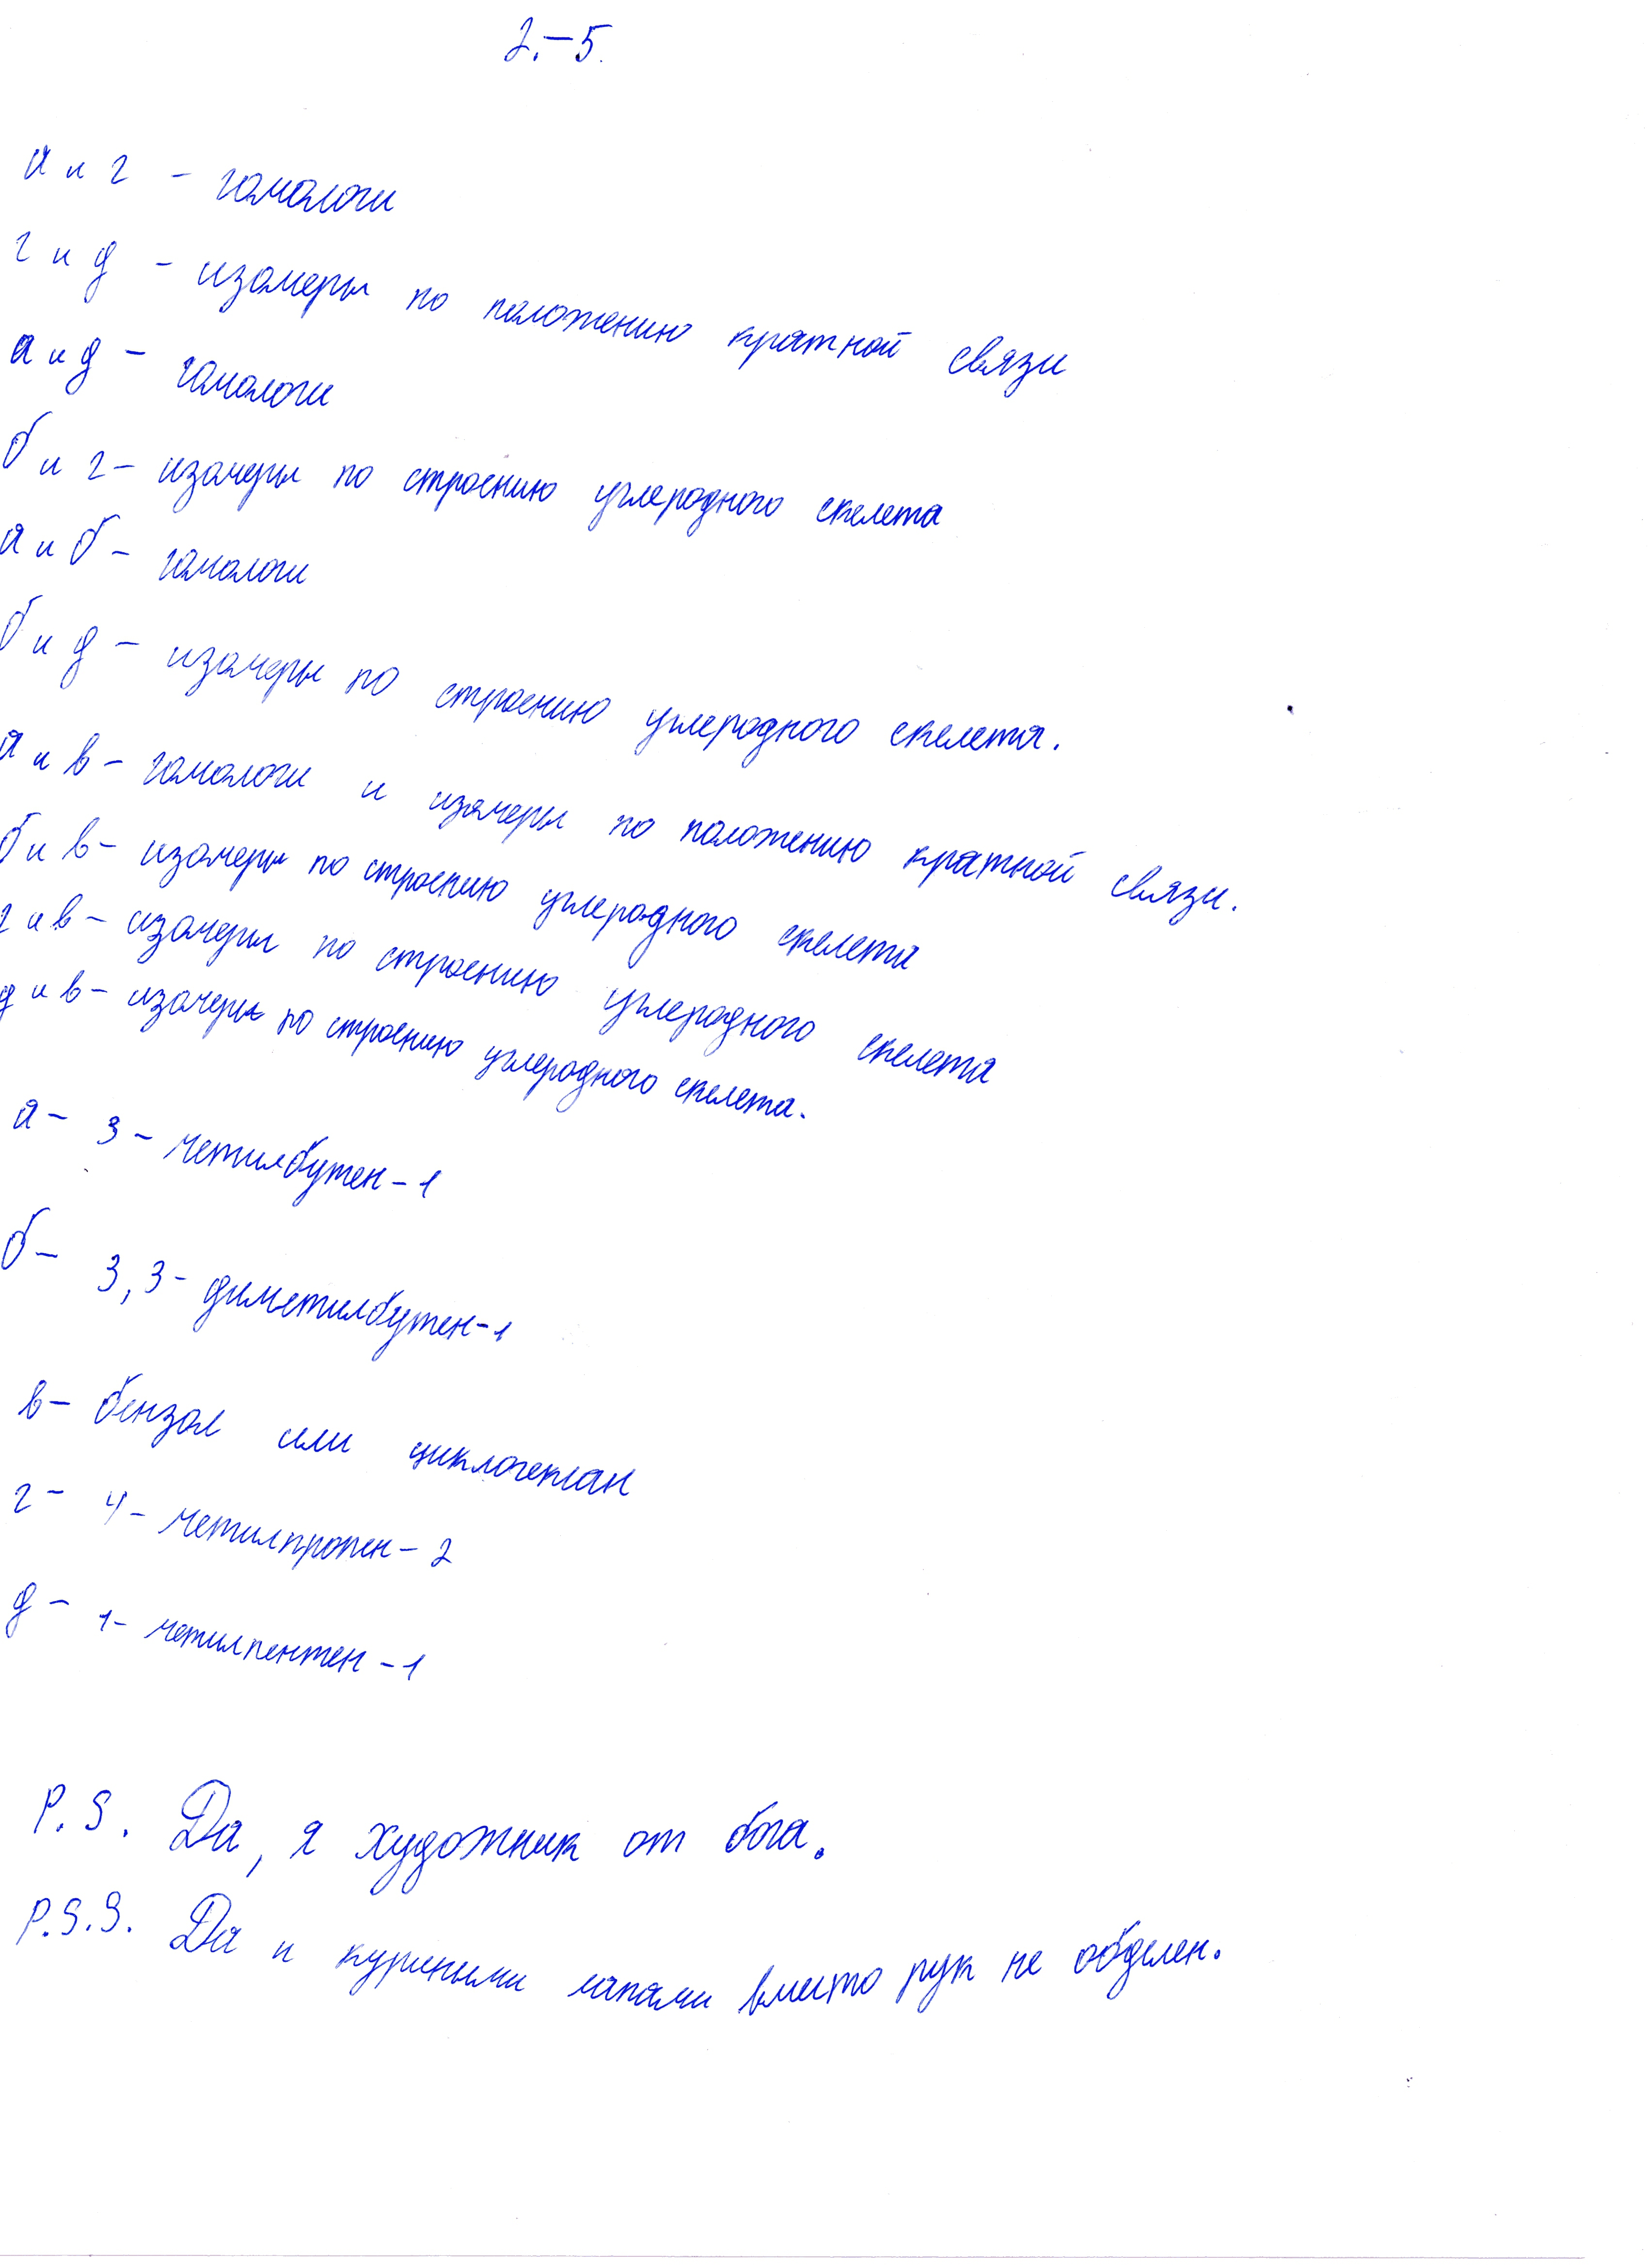 2.-5.
а и г - гомологи
г и д - изомеры по положению кратной связи
а и д - гомологи
б и г - изомеры по строению углеродного скелета
а и б - гомологи
б и д - изомеры по строению углеродного скелета.
а и в - гомологи и изомеры по положению кратной связи.
б и в - изомеры по строению углеродного скелета
г и в - изомеры по строению углеродного скелета
д и в - изомеры по строению углеродного скелета.
а - 3 - метилбутен - 1
б - 3,3 - диметилбутен - 1
в - бензол или циклогексан
г - 4 - метилпропен - 2
д - 1 - метилпентен - 1
P.S. Да, я художник от бога.
P.S.S. Да и куриными лапами вместо рук не обделен.